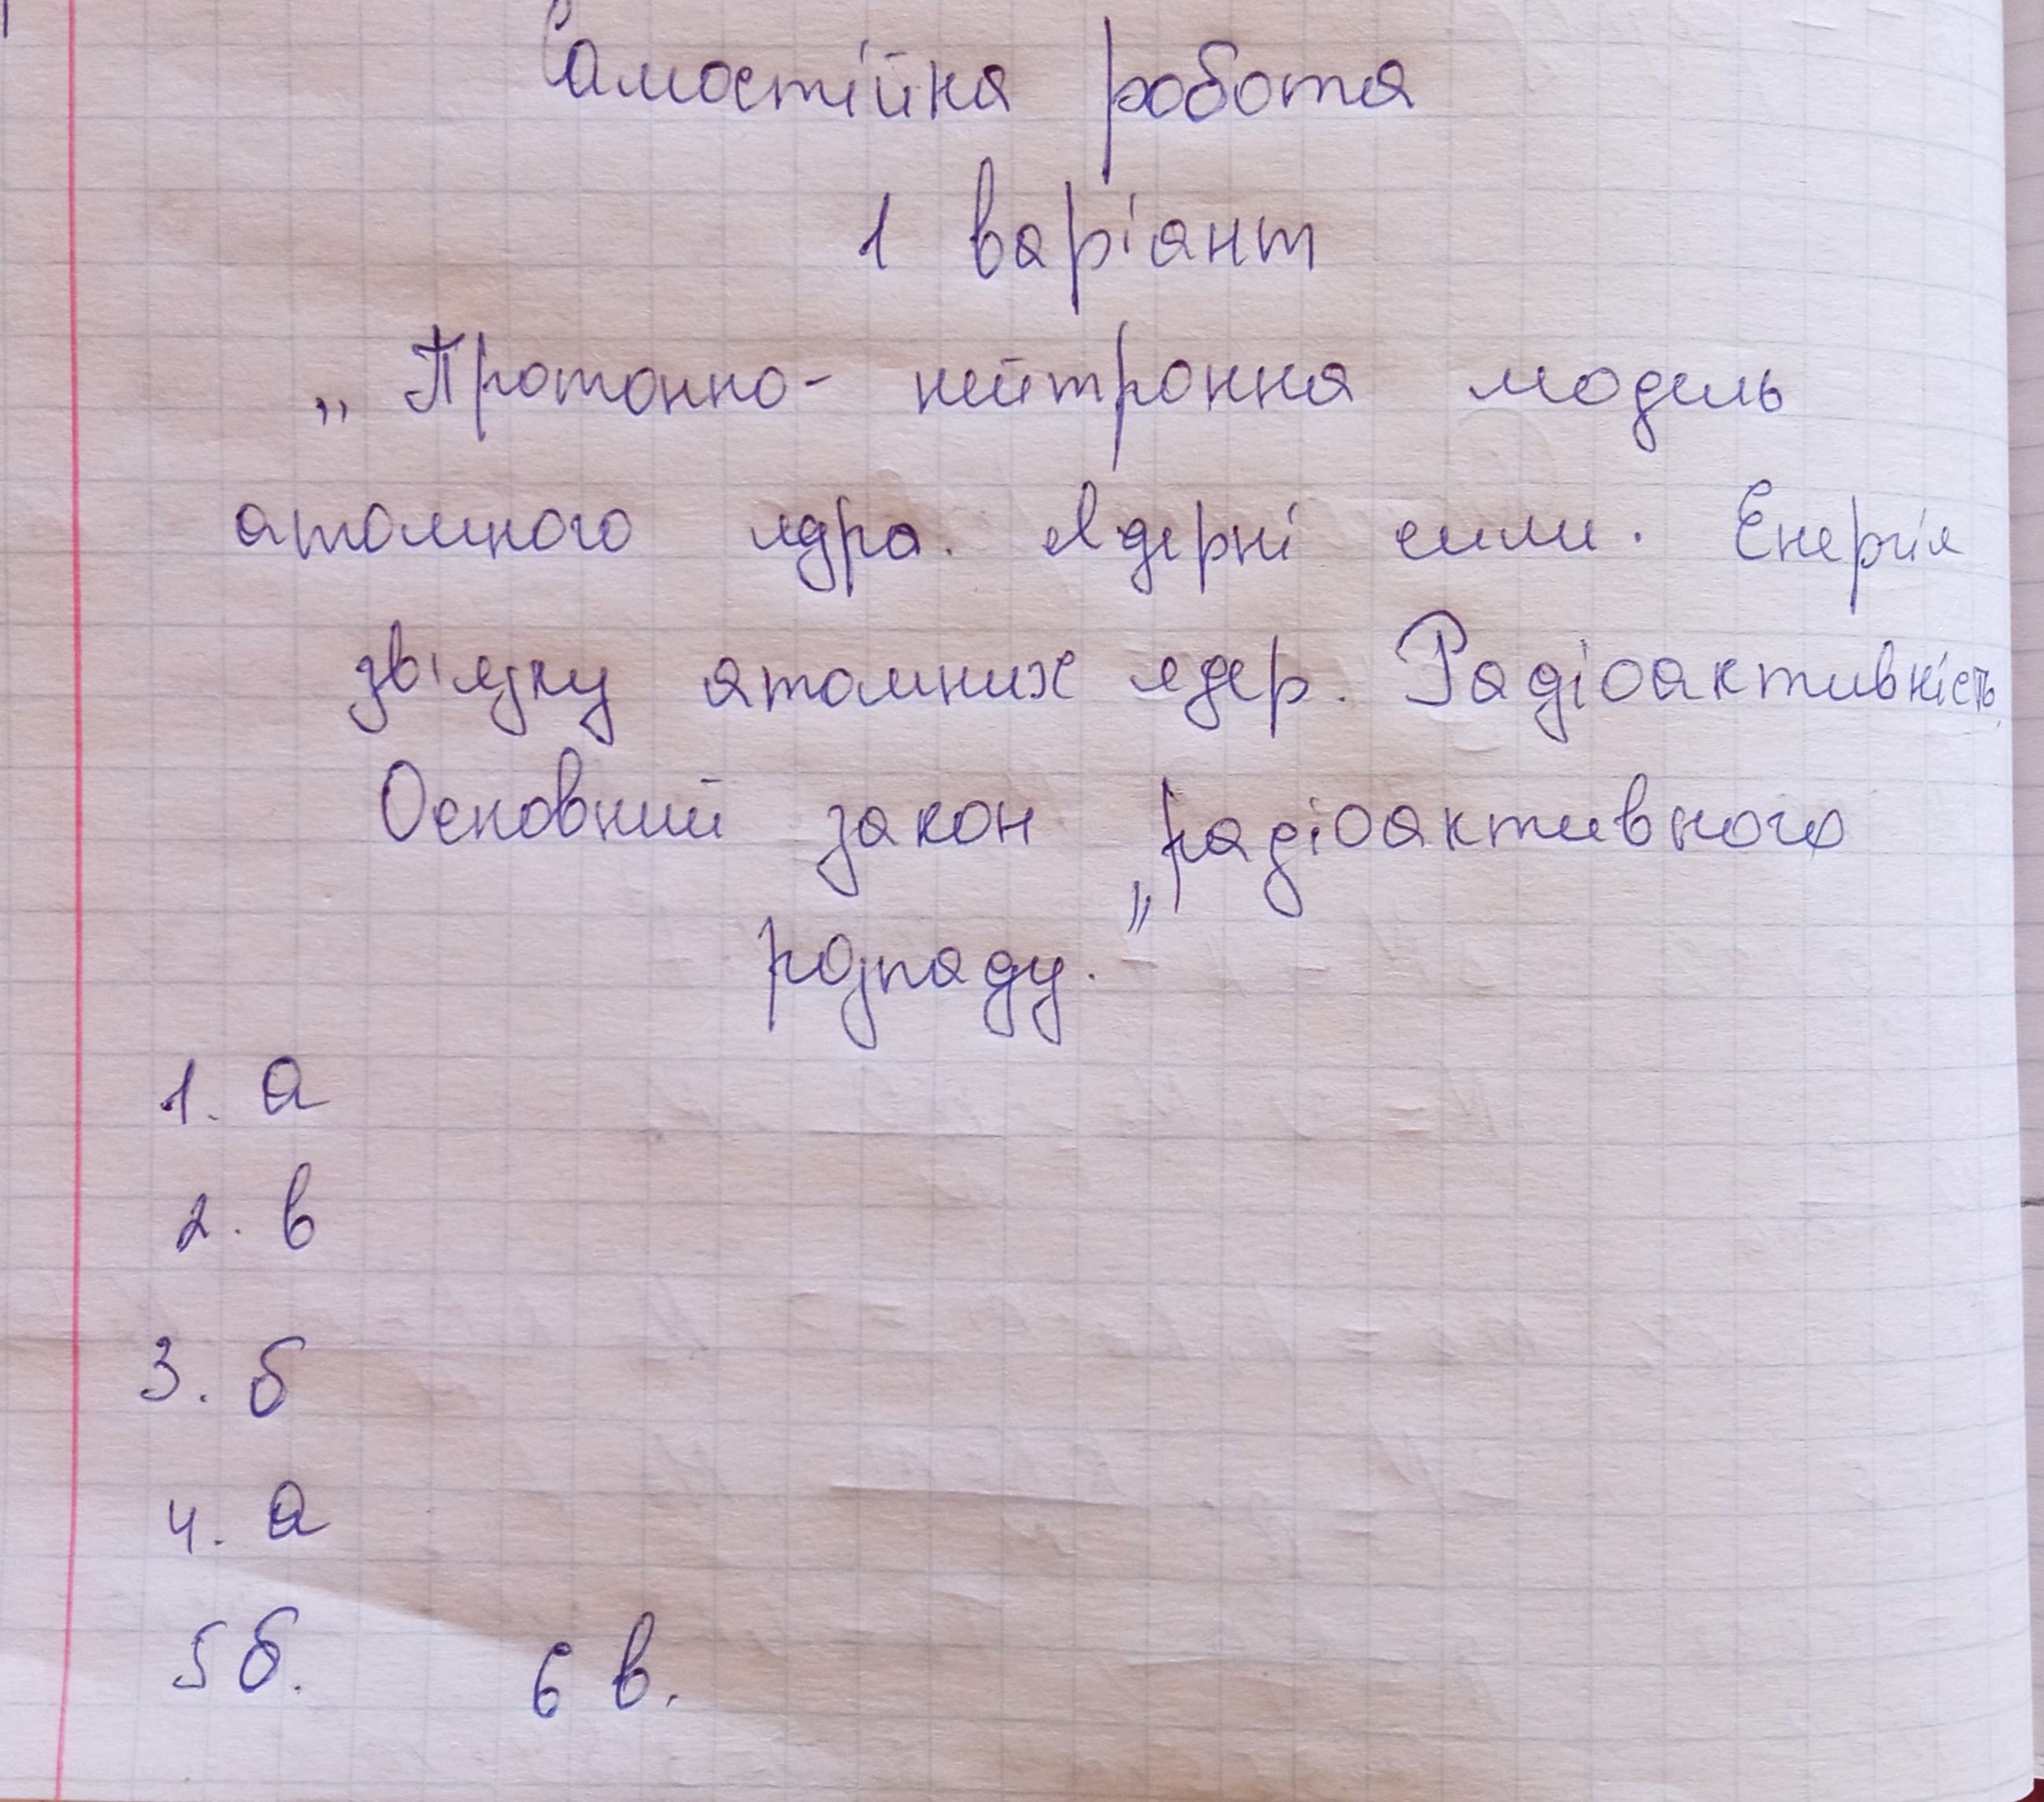 Самостійна робота
1 варіант
„Протонно- нейтронна модель
атомного ядра. Ядерні сили. Енергія
зв'язку атомних ядер. Радіоактивність.
Основний закон радіоактивного
розпаду."
1. а
2. в
3. б
4. а
5 б. 6 в.